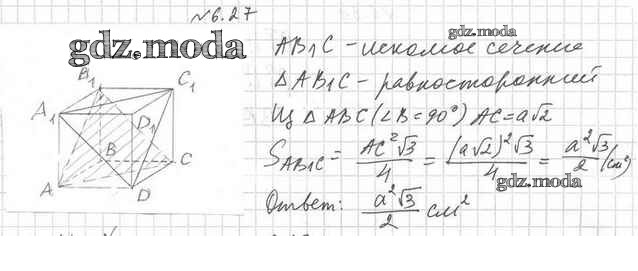 №6.27
gdz.moda
B₁ C₁
A₁ D₁
B C
A D
AB₁C - искомое сечение
△AB₁C - равносторонний
Из △ABC (∠B=90°) AC=a√2
S_AB₁C = AC²√3/4 = (a√2)²√3/4 = a²√3/2 (см²)
gdz.moda
Ответ: a²√3/2 см²